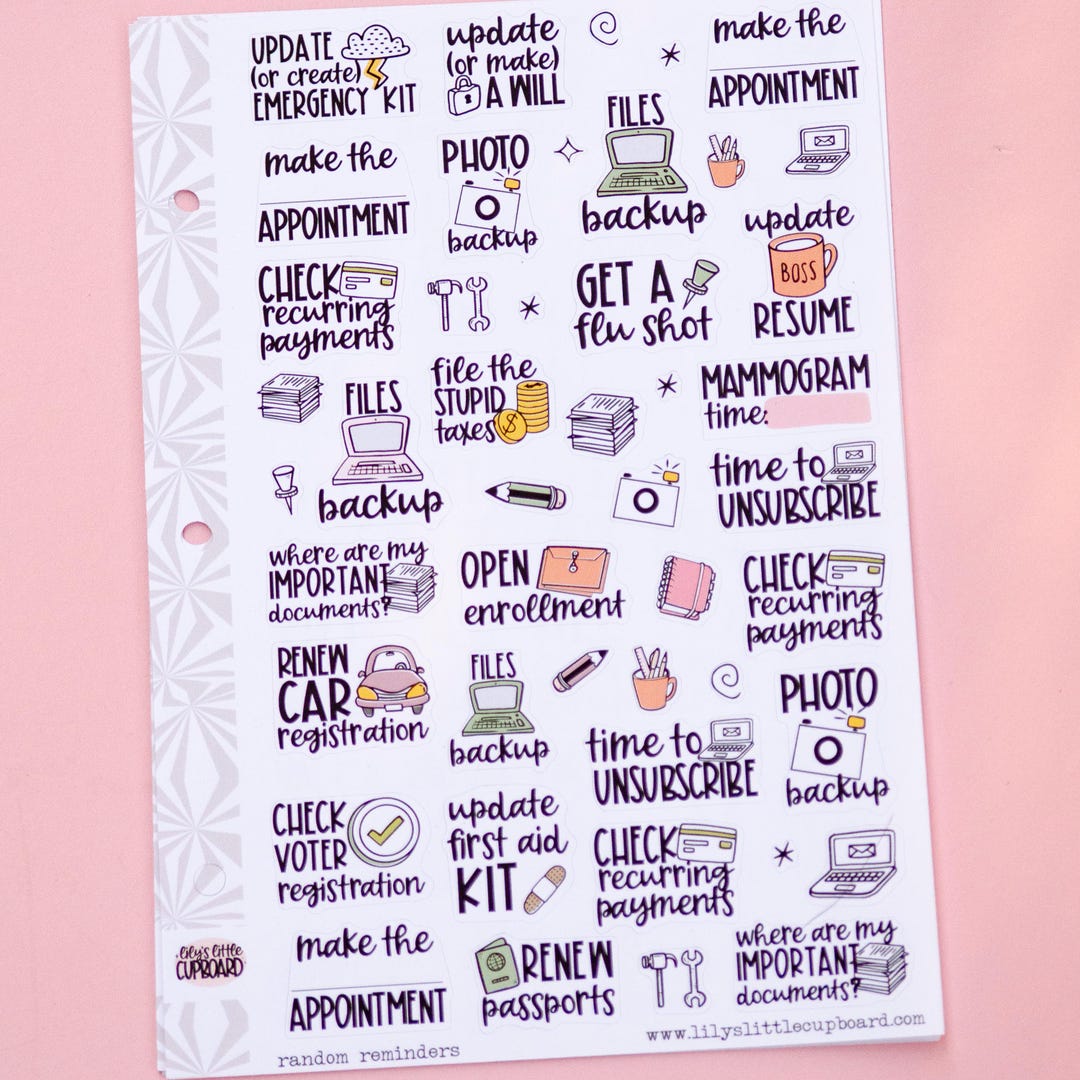 UPDATE
(or create)
EMERGENCY KIT
update
(or make)
A WILL
make the
APPOINTMENT
make the
APPOINTMENT
PHOTO
backup
FILES
backup
update
BOSS
RESUME
CHECK
recurring
payments
GET A
flu shot
FILES
backup
file the
STUPID
taxes
$
MAMMOGRAM
time:
time to
UNSUBSCRIBE
where are my
IMPORTANT
documents?
OPEN
enrollment
CHECK
recurring
payments
RENEW
CAR
registration
FILES
backup
time to
UNSUBSCRIBE
PHOTO
backup
CHECK
VOTER
registration
update
first aid
KIT
CHECK
recurring
payments
make the
APPOINTMENT
RENEW
passports
where are my
IMPORTANT
documents?
lily's little
CUPBOARD
random reminders
www.lilyslittlecupboard.com